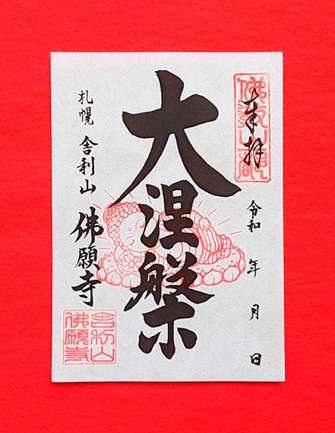 奉拝
令和 年 月 日
大涅槃
札幌 舎利山
佛願寺
舎利山
佛願寺